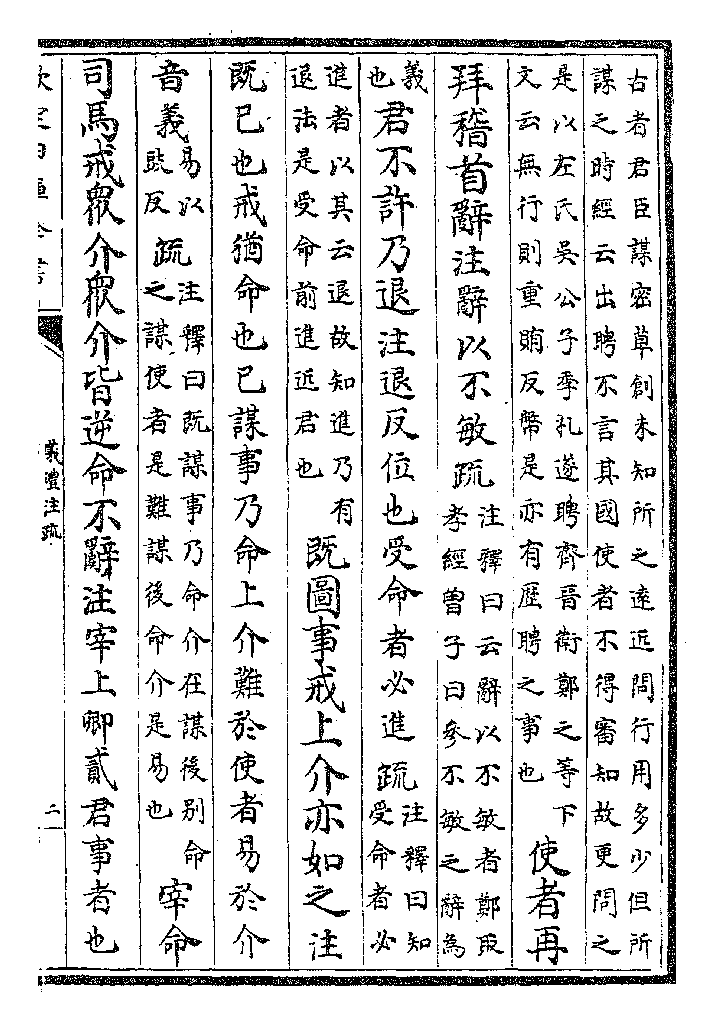 古者君臣謀密草創未知所之遠近問行用多少但所
謀之時經云出聘不言其國使者不得審知故更問之
是以左氏吳公子季札遂聘齊晉衛鄭之等下
文云無行則重賄反幣是亦有歷聘之事也
使者再
拜稽首辭注辭以不敏疏
注釋曰云辭以不敏者鄭取
孝經曾子曰參不敏之辭為
義
也
君不許乃退注退反位也受命者必進疏
注釋曰知
受命者必
進者以其云退故知進乃有
退法是受命前進近君也
既圖事戒上介亦如之注
既已也戒猶命也已謀事乃命上介難於使者易於介
音義
易以
豉反
疏
注釋曰既謀事乃命介在謀後別命
之謀使者是難謀後命介是易也
宰命
司馬戒眾介眾介皆逆命不辭注宰上卿貳君事者也
欽定四庫全書
儀禮注疏
二